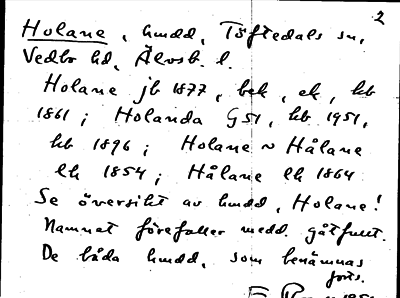 2
Holane, hmdd, Töftedals sn,
Vedbo hd, Älvsb. l.
Holane jb 1877, bek, ek, kb
1861; Holanda G51, kb 1951,
kb 1896; Holane ~ Hålane
lk 1854; Hålane lk 1864
Se översikt av hmdd, Holane!
Namnet förefaller medd. gåtfullt.
De båda hmdd, som benämnas
forts.